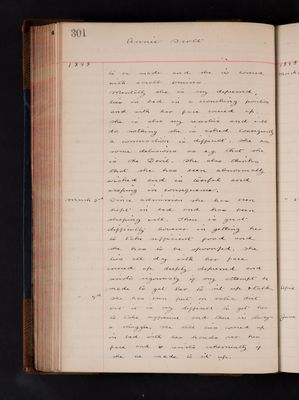 301
Annie Scott
1898
to be made and she is covered
with small bruises.
Mentally she is very depressed,
lies in bed in a crouching position
and with her face covered up.
She is also very resistive and will
do nothing she is asked. Consequently
a conversation is difficult. She has
some delusions as e.g. that she
is the Devil. She also thinks
that she has been abnormally
wicked and is tearful and
weeping in consequence.
March 2nd Since admission she has been
kept in bed and has been
sleeping well. There is great
difficulty however in getting her
to take sufficient food and
she has to be spoonfed. She
lies all day with her face
covered up deeply depressed and
resists vigorously if any attempt is
made to get her to sit up & talk.
9th She has been put on extra diet
but it is very difficult to get her
to take sufficient and there is always
a struggle. She still lies covered up
in bed with her hands over her
face and resists vehemently if
she is made to sit up.
1898
March
April
June